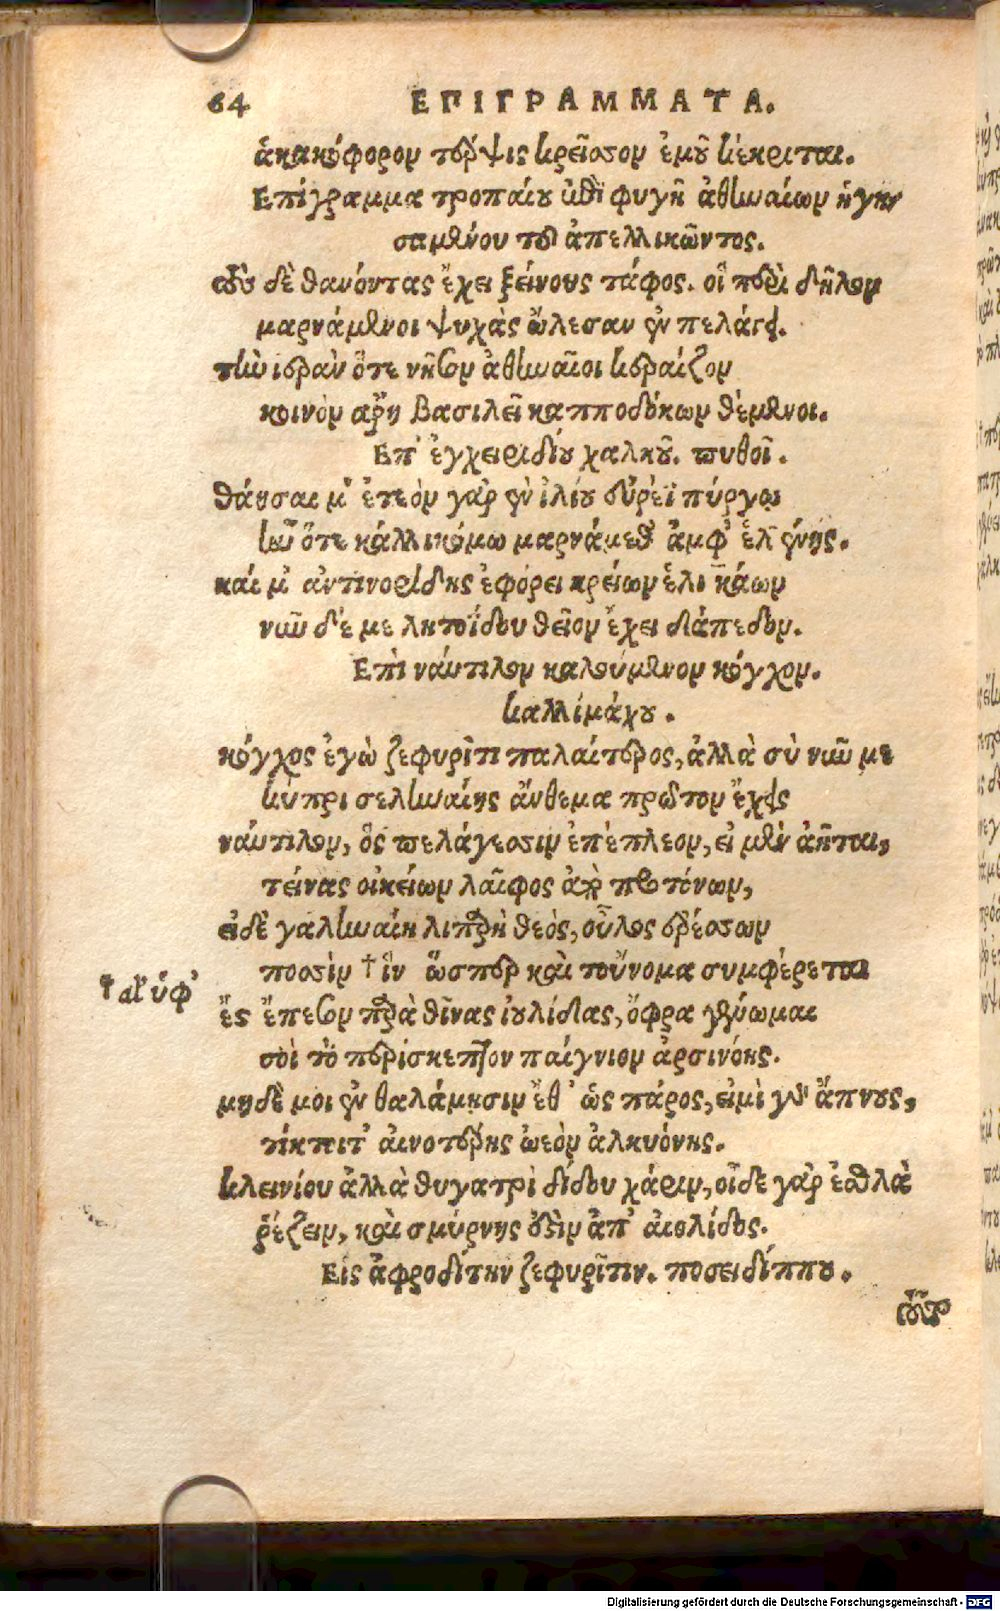 64 ΕΠΙΓΡΑΜΜΑΤΑ.
ἁκακόφορον τέρψις κρεῖσσον ἐμοῦ κέκριται.
Επίγραμμα τροπαίου ἐπὶ φυγῇ ἀθηναίων ἡγη
σαμένου τοῦ ἀπελλικῶντος.
τούσδε θανόντας ἔχει ξείνους τάφος. οἳ περὶ δῆλον
μαρνάμενοι ψυχὰς ὤλεσαν ἐν πελάγει.
τὴν ἱερὰν ὅτε νῆσον ἀθηναῖοι κεραΐζον
κοινὸν ἄρη βασιλεῖ καππαδόκων θέμενοι.
Επ' ἐγχειριδίου χαλκοῦ. πυθοῖ.
θάησαι μ' ἐτεὸν γὰρ ἐν ἰλίου εὐρέϊ πύργῳ
ἦν ὅτε καλλικόμω μαρνάμεθ' ἀμφ' ἑλένης.
καί μ' ἀντινορίδης ἐφόρει κρείων ἑλικάων
νῦν δέ με λητοΐδου θεῖον ἔχει δάπεδον.
Επὶ ναύτιλον καλούμενον κόγχον.
καλλιμάχου.
κόγχος ἐγὼ ζεφυρῖτι παλαίτερος, ἀλλὰ σὺ νῦν με
κύπρι σεληναίης ἄνθεμα πρῶτον ἔχεις
ναύτιλον, ὃς πελάγεσσιν ἐπέπλεον, εἰ μὲν ἀῆται,
τείνας οἰκείων λαῖφος ἀπὸ προτόνων,
εἰδὲ γαληναίη λιπαρὴ θεὸς, οὖλος ἐρέσσων
ποσσὶν † ἳν ὥσπερ καὶ τοὔνομα συμφέρεται
† αἳ ὑφ'
ἔς ἔπεσον παρὰ θῖνας ἰουλίδας, ὄφρα γένωμαι
σοὶ τὸ περίσκεπτον παίγνιον ἀρσινόης.
μηδὲ μοι ἐν θαλάμησιν ἔθ' ὡς πάρος, εἰμὶ γὰρ ἄπνους,
τίκτητ' αἰνοτέρης ὠεὸν ἀλκυόνης.
κλεινίου ἀλλὰ θυγατρὶ δίδου χάριν, οἶδε γὰρ ἐσθλὰ
ῥέζειν, καὶ σμύρνης ἐστὶν ἀπ' αἰολίδος.
Εἰς ἀφροδίτην ζεφυρῖτιν. ποσειδίππου.
Digitalisierung gefördert durch die Deutsche Forschungsgemeinschaft - DFG